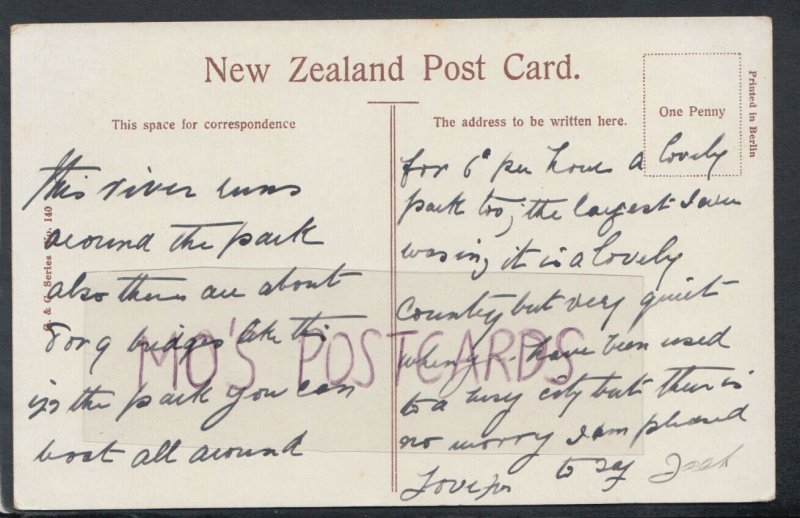 New Zealand Post Card.
This space for correspondence
The address to be written here.
One Penny
Printed in Berlin
G. & G. Series No. 140
This river runs
around the park
also there are about
8 or 9 bridges like this
in the park you can
boat all around
for 6d per hour a lovely
park too, the largest I ever
was in, it is a lovely
country but very quiet
when I have been used
to a busy city but there is
no worry I am pleased
to say
Love from
Jack
MO'S POSTCARDS